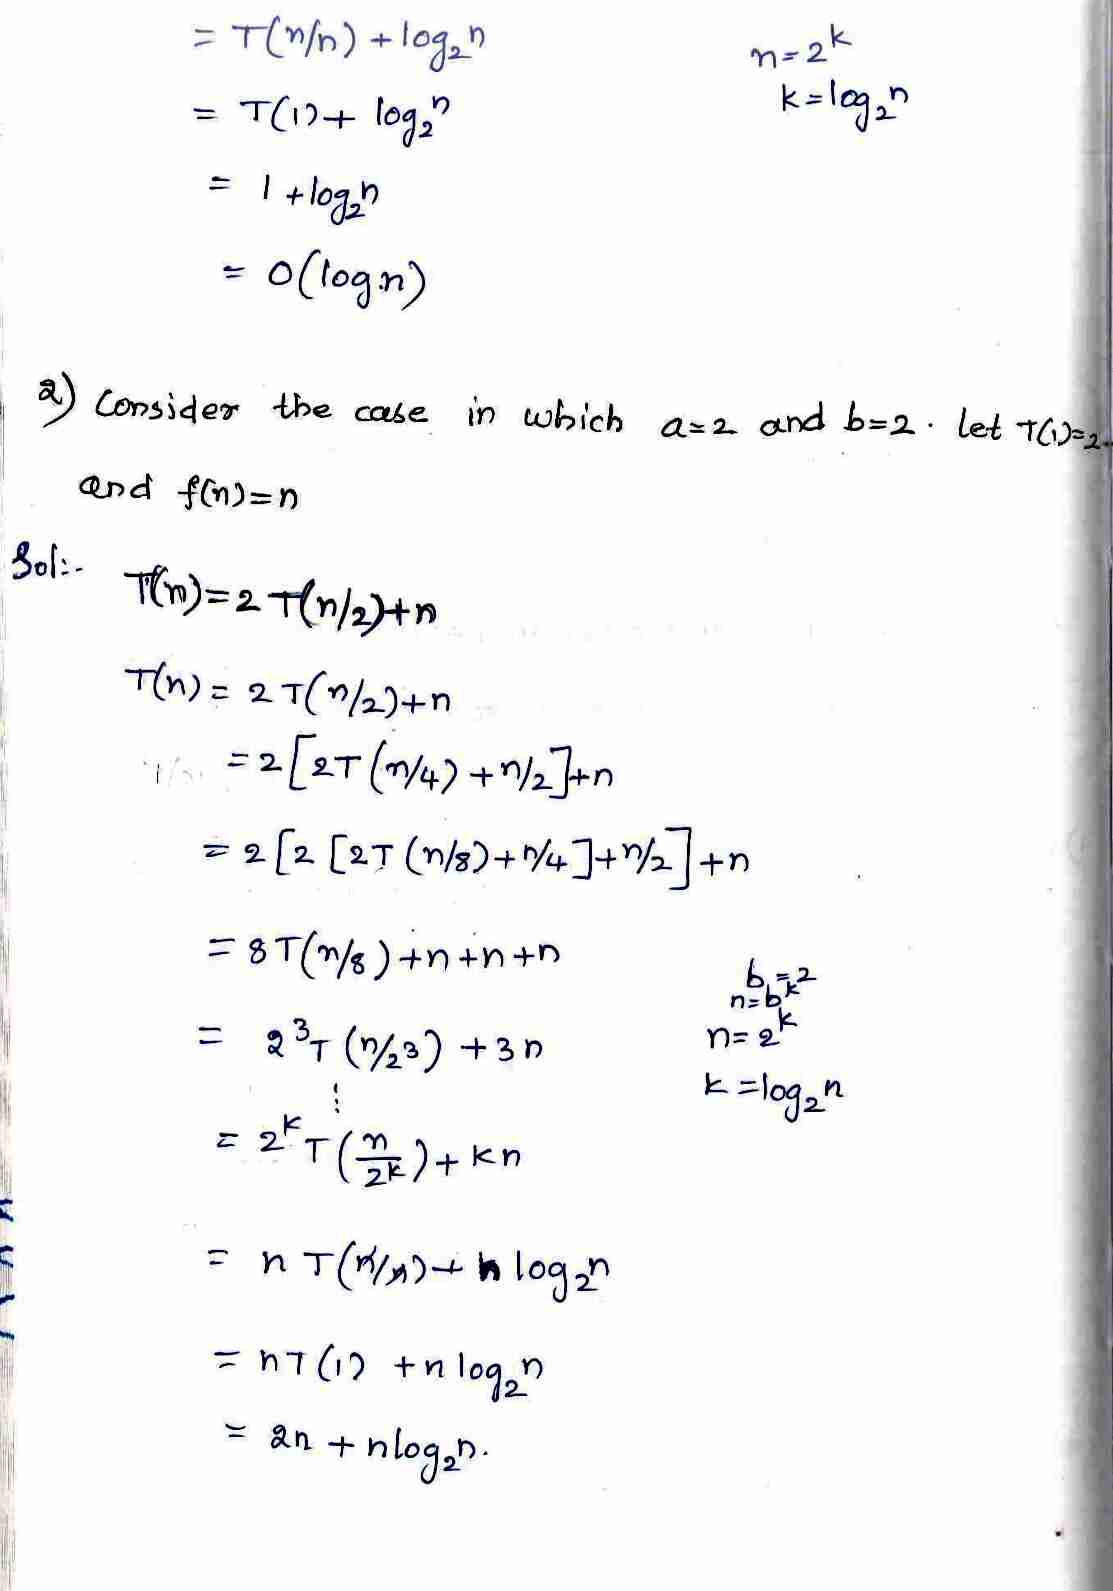 = T(n/n) + log₂n
n=2ᵏ
= T(1) + log₂n
k=log₂n
= 1 + log₂n
= O(log n)
2) Consider the case in which a=2 and b=2. let T(1)=2.
and f(n)=n
Sol:-
T(n)=2T(n/2)+n
T(n) = 2T(n/2)+n
=2[2T(n/4)+n/2]+n
=2[2[2T(n/8)+n/4]+n/2]+n
=8T(n/8)+n+n+n
b=2
n=bᵏ
= 2³T(n/2³)+3n
n=2ᵏ
⋮
k=log₂n
= 2ᵏT(n/2ᵏ)+kn
= n T(n/n)+n log₂n
= nT(1) +n log₂n
= 2n + nlog₂n.